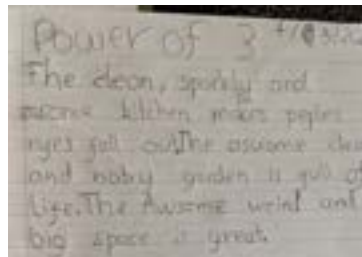 Power of 3
The clean, sparkly and
kitchen makes peples
eyes fall out. The awsome
and baby garden is full of
life. The Awsome weird and
big space is great.